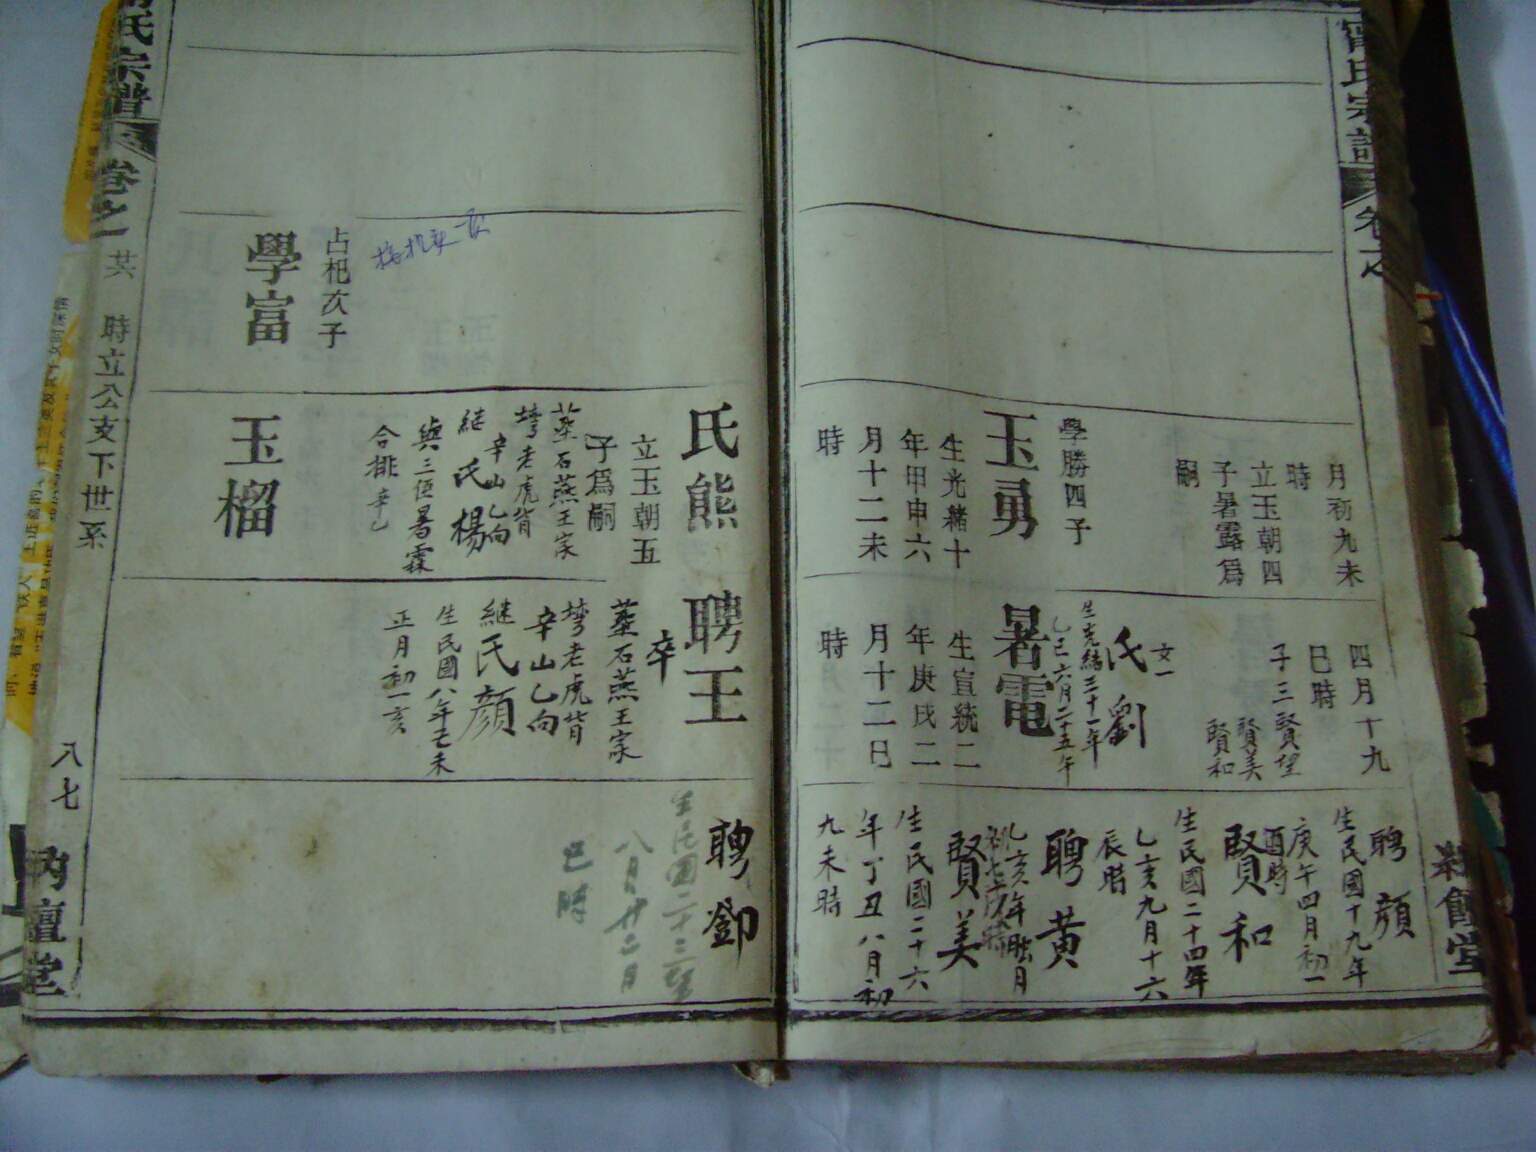 氏宗譜
卷之
時立公支下世系
八七
堂
月初九未
時
立玉朝四
子暑露爲
嗣
學勝四子
玉勇
生光緒十
年甲申六
月十二未
時
四月十九
巳時
子三賢望
賢美
賢和
女一
氏劉
生光緒三十一年
乙巳六月二十五午
暑電
生宣統二
年庚戌二
月十二巳
時
聘顏
生民國十九年
庚午四月初一
酉時
賢和
生民國二十四年
乙亥九月十六
辰時
聘黃
乙亥年
賢美
生民國二十六
年丁丑八月初
九未時
占杞次子
學富
氏熊
立玉朝五
子爲嗣
塟石燕王家
塆老虎背
辛山乙向
継氏楊
與三侄暑霖
合排辛乙
玉榴
聘王
卒
塟石燕王家
塆老虎背
辛山乙向
継氏顏
生民國八年己未
正月初一亥
聘鄧
生民國二十三年
八月廿二日
巳時